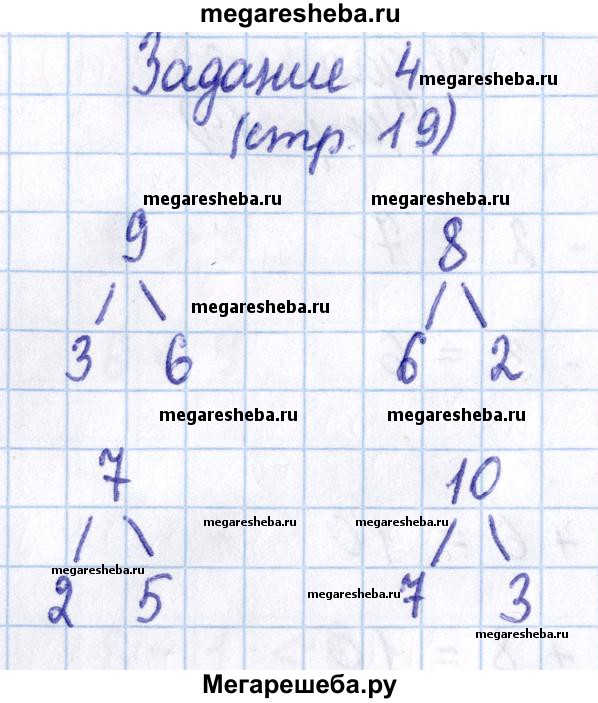 megaresheba.ru
Задание 4
megaresheba.ru
(стр. 19)
megaresheba.ru megaresheba.ru
9 8
megaresheba.ru
3 6 6 2
megaresheba.ru megaresheba.ru
7 10
megaresheba.ru megaresheba.ru
megaresheba.ru
2 5 7 3
megaresheba.ru
megaresheba.ru
Мегарешеба.ру